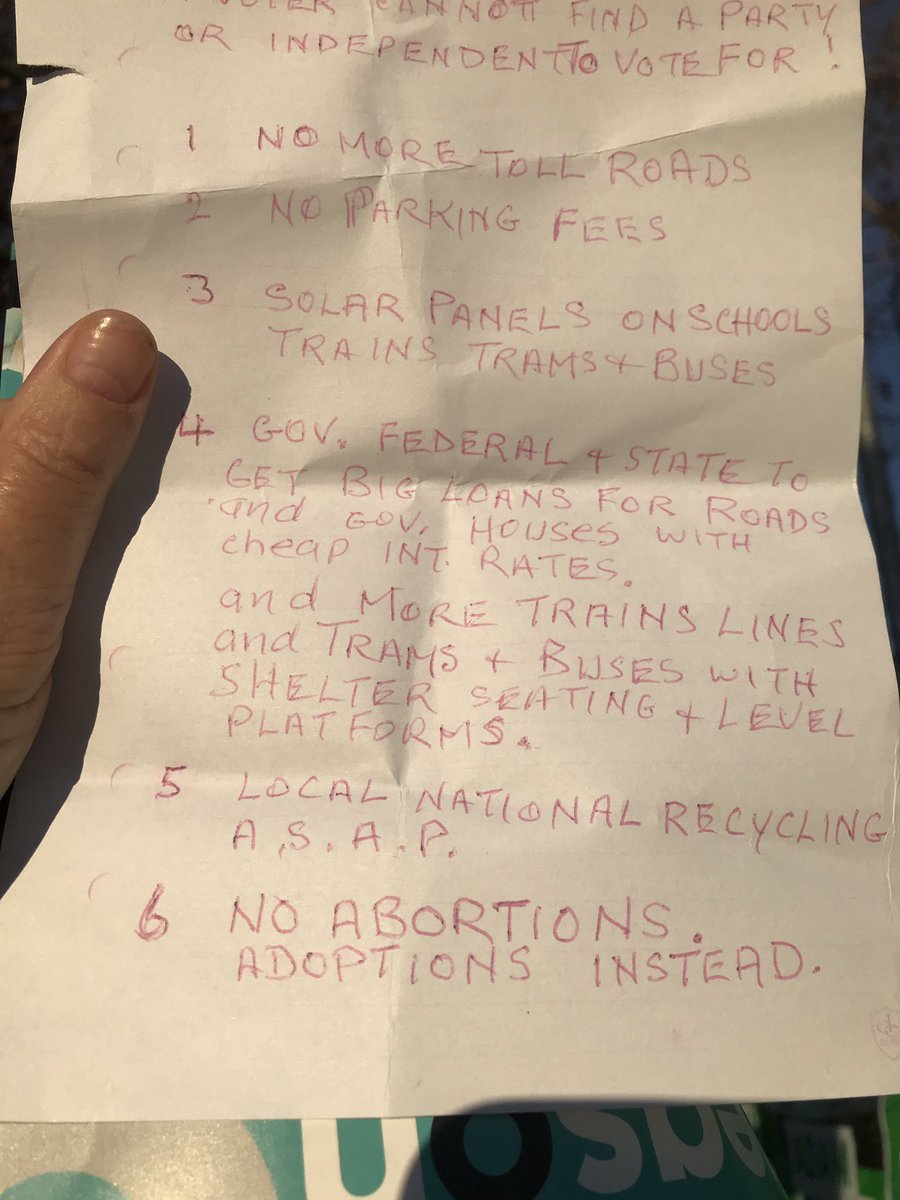 VOTER CANNOT FIND A PARTY
OR INDEPENDENT TO VOTE FOR !
1 NO MORE TOLL ROADS
2 NO PARKING FEES
3 SOLAR PANELS ON SCHOOLS
TRAINS TRAMS + BUSES
4 GOV. FEDERAL + STATE TO
GET BIG LOANS FOR ROADS
and GOV. HOUSES WITH
cheap INT. RATES.
and MORE TRAINS LINES
and TRAMS + BUSES WITH
SHELTER SEATING + LEVEL
PLATFORMS.
5 LOCAL NATIONAL RECYCLING
A.S.A.P.
6 NO ABORTIONS.
ADOPTIONS INSTEAD.